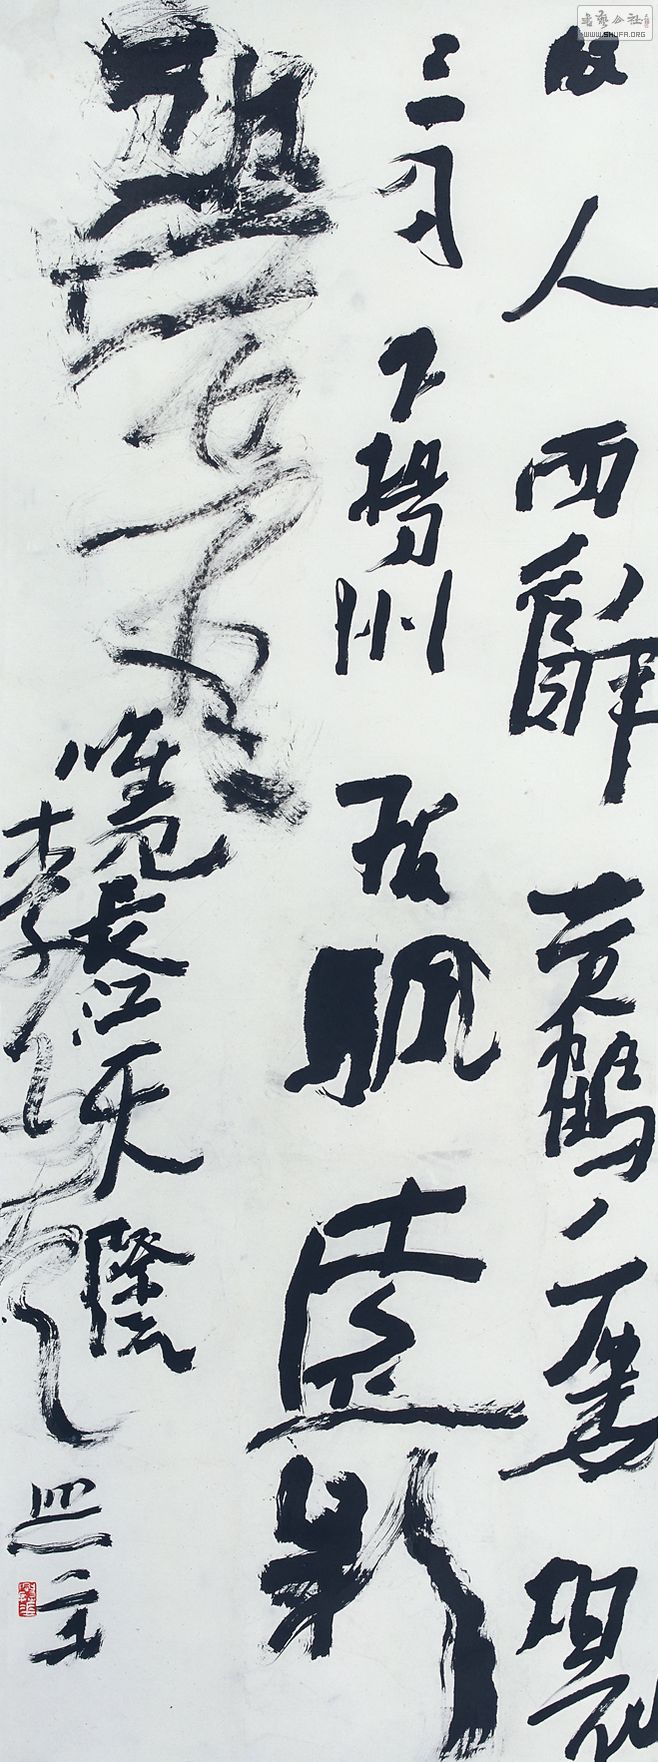 书艺公社
WWW.SHUFA.ORG
故人西辭黃鶴樓煙花
三月下揚州孤帆遠影
碧空盡唯見長江天際
李